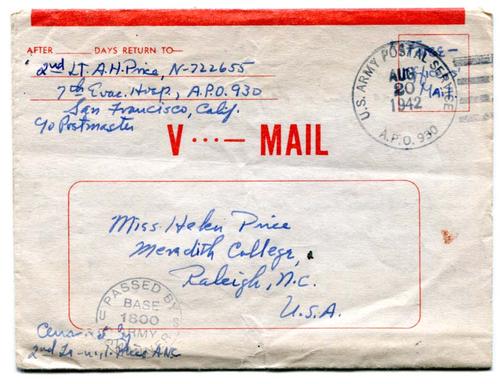 AFTER DAYS RETURN TO
2nd Lt. A.H. Price, N-722655
7th Evac. Hosp., A.P.O. 930
San Francisco, Calif.
c/o Postmaster
U.S. ARMY POSTAL SERVICE
AUG
20
1942
A.P.O. 930
Free
Mail
V ...— MAIL
Miss Helen Price
Meredith College,
Raleigh, N.C.
U.S.A.
PASSED BY
BASE
1800
ARMY
Censored by
2nd Lt. Price ANC